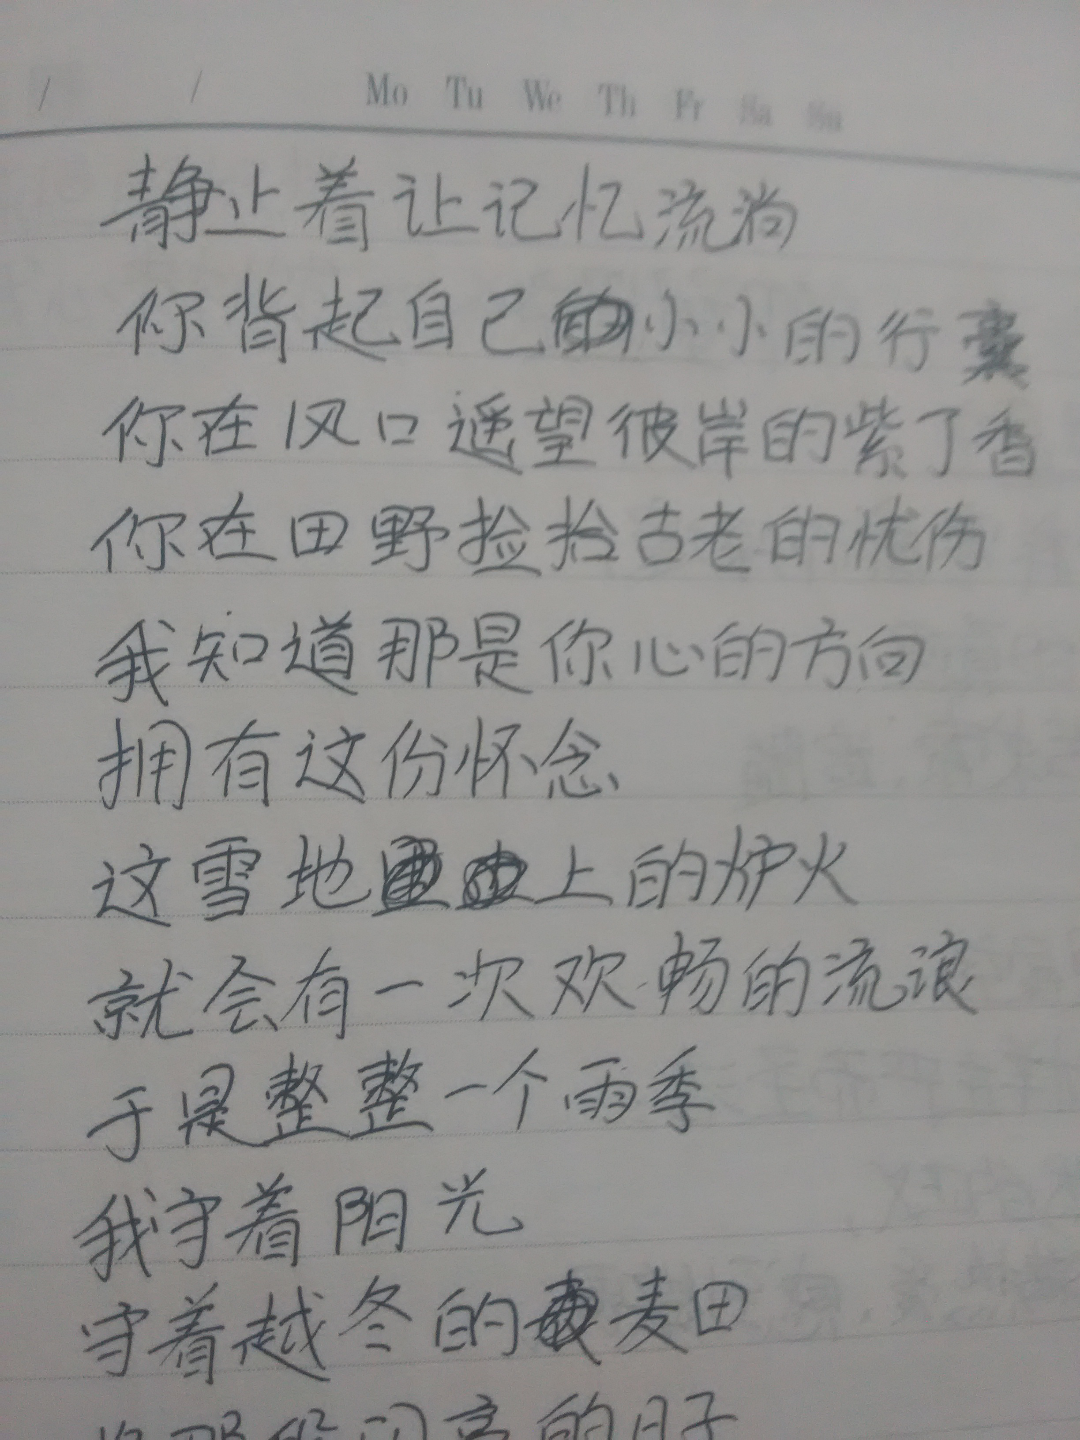 / / Mo Tu We Th Fr Sa Su
静止着让记忆流淌
你背起自己小小的行囊
你在风口遥望彼岸的紫丁香
你在田野捡拾古老的忧伤
我知道那是你心的方向
拥有这份怀念
这雪地上的炉火
就会有一次欢畅的流浪
于是整整一个雨季
我守着阳光
守着越冬的麦田
那段闪亮的日子